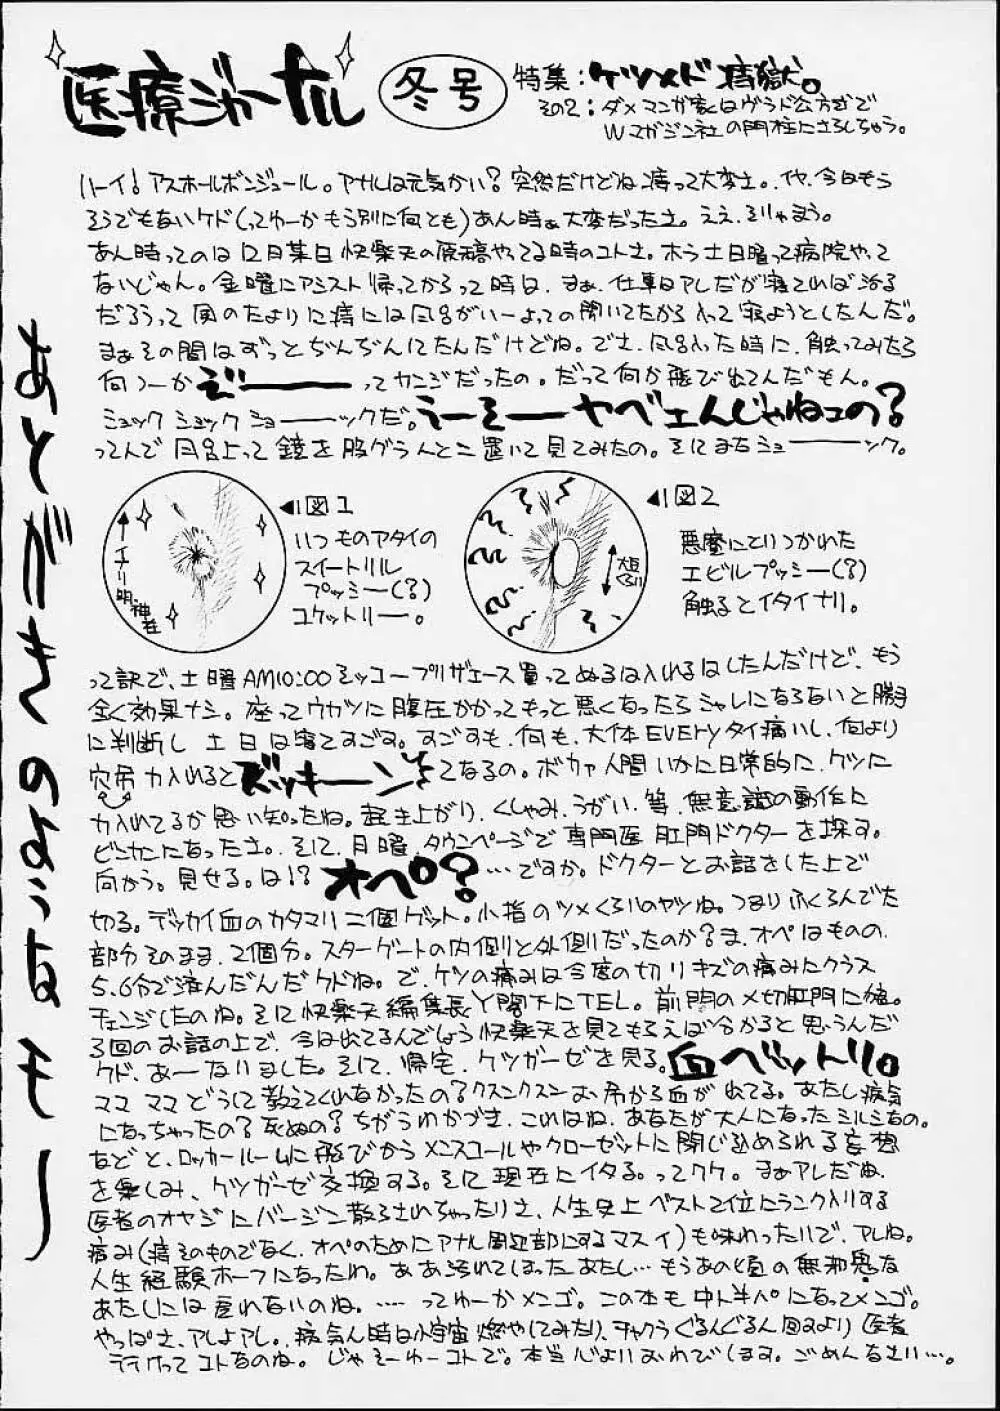 医療ジャーナル 冬号 特集：ケツメド痔獄。
その2：ダメマンガ家はヴラド公方式で
Wマガジン社の門柱にさらしちゃう。
ハーイ！アスホールボンジュール。アナルは元気かい？突然だけどね痔って大変さ。イヤ、今日もう
そうでもないケド(ってゆーかもう別に何とも)あん時ぁ大変だったさ。ええ、そりゃぁもう。
あん時ってのは12月某日快楽天の原稿やってる時のコトさ。ホラ土日曜って病院やって
ないじゃん。金曜にアシスト帰ってからって時は、まぁ、仕事日アレだが寝てれば治る
だろうって風のたよりに痔には風呂がいーよっての聞いてたから入って寝ようとしたんだ。
まぁその間はずっとぢんぢんしてたんだけどね。でさ、風呂入った時に、触ってみたら
何つーかぞーーーってカンジだったの。だって何か飛び出てんだもん。
ショック ショック ショーーックだ。うーそーヤベェんじゃねェの？
ってんで風呂上って鏡を股グラんとこ置いて見てみたの。そしてまたショーーーック。
◀図1
いつものアタイの
スイートリル
プッシー(?)
コケットリー。
◀図2
悪魔にとりつかれた
エビルプッシー(?)
触るとイタイナリ。
って訳で、土曜AM10:00ミッコープリザエース買ってぬるは入れるはしたんだけど、もう
全く効果ナシ。座ってウカツに腹圧かかってもっと悪くなったらシャレにならないと勝手
に判断し土日は寝てすごす。すごすも、何も、大体EVERYタイ痛いし、何より
穴吊力入れるとズッキーンってなるの。ボカァ人間いかに日常的に、ケツに
力入れてるか思い知ったね。起き上がり、くしゃみ、うがい、等、無意識の動作に
ビンカンになったさ。そして、月曜、タウンページで専門医肛門ドクターを探す。
向かう。見せる。は!?オペ？…ですか。ドクターとお話をした上で
切る。デッカイ血のカタマリ二個ゲット。小指のツメくらいのヤツね。つまりふくらんでた
部分そのまま、2個分。スターゲートの内側と外側だったのか？ま、オペはものの、
5、6分で済んだんだケドね。で、ケツの痛みは今度の切りキズの痛みにクラス
チェンジしたのね。そして快楽天編集長Y閣下にTEL。前門の〆切肛門に狼。
3回のお話の上で、今は出てるんでしょう快楽天を見てもらえば分かると思うんだ
ケド、あーなりました。そして、帰宅、ケツガーゼを見る。血ベットリ。
ママ ママ どうして教えてくれなかったの？クスンクスンお吊から血が出てる。あたし病気
になっちゃったの？死ぬの？ちがうわかづき、これはね、あなたが大人になったシルシなの。
などと、ロッカールームに飛びかうメンスコールやクローゼットに閉じ込められる妄想
を楽しみ、ケツガーゼ交換する。そして現在にイタる。ってワケ。まぁアレだね、
医者のオヤジにバージン散らされちゃったりさ、人生史上ベスト2位にランク入りする
痛み(痔そのものでなく、オペのためにアナル周辺部にするマスイ)も味わったりで、アレね。
人生経験ホーフになったわ。ああ汚れてしまったあたし…もうあの頃の無邪気な
あたしには戻れないのね。……ってゆーかメンゴ。この本も中ト半パになってメンゴ。
やっぱさ、アレよアレ。病気ん時は小宇宙燃やしてみたり、チャクラぐるんぐるん回すより医者
行けってコトなのね。じゃそーゆーコトで。本当心よりおわびします。ごめんなさい…。
あとがきのようなモノー